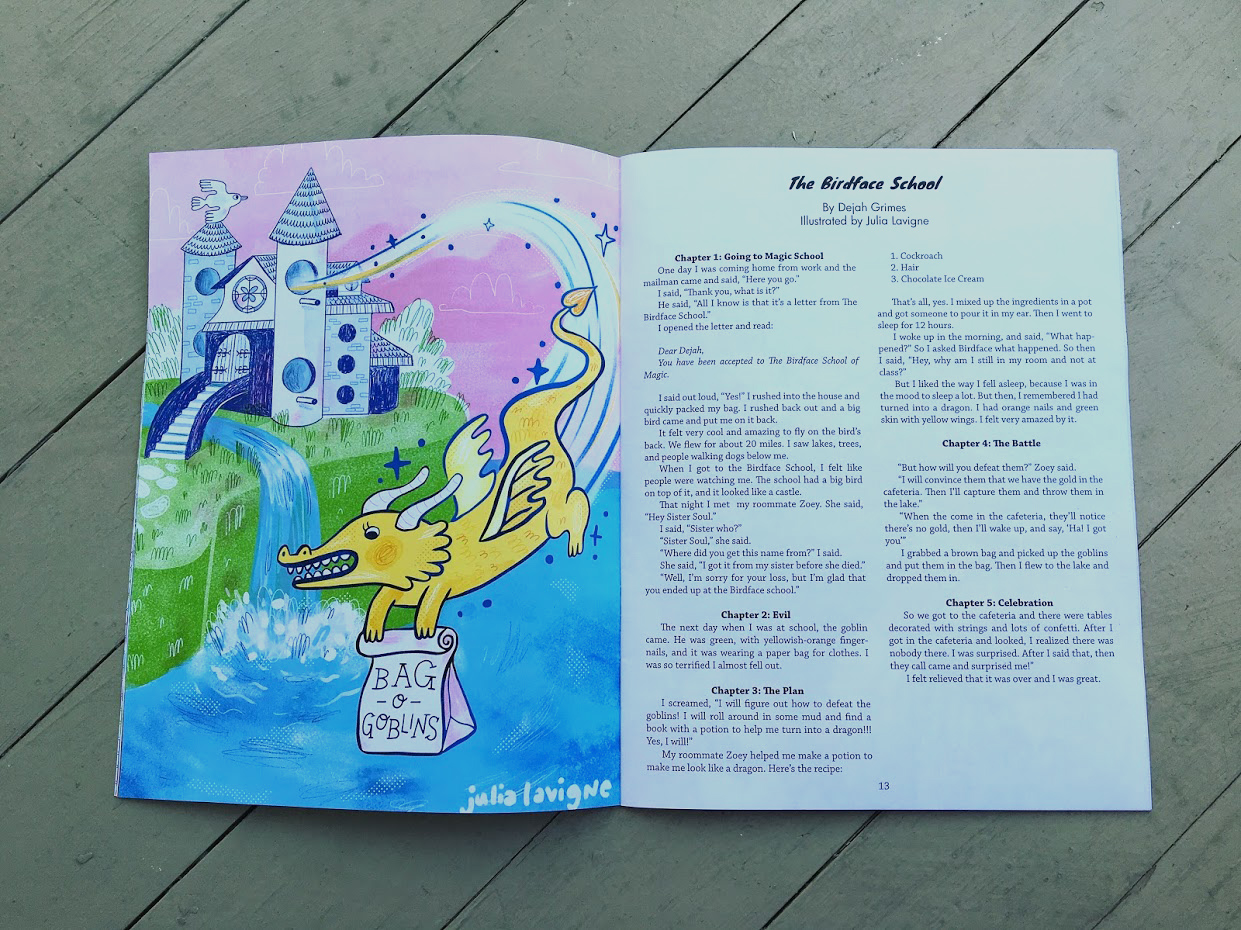 BAG
-o-
GOBLINS
julia lavigne
The Birdface School
By Dejah Grimes
Illustrated by Julia Lavigne
Chapter 1: Going to Magic School
One day I was coming home from work and the
mailman came and said, "Here you go."
I said, "Thank you, what is it?"
He said, "All I know is that it's a letter from The
Birdface School."
I opened the letter and read:
Dear Dejah,
You have been accepted to The Birdface School of
Magic.
I said out loud, "Yes!" I rushed into the house and
quickly packed my bag. I rushed back out and a big
bird came and put me on it back.
It felt very cool and amazing to fly on the bird's
back. We flew for about 20 miles. I saw lakes, trees,
and people walking dogs below me.
When I got to the Birdface School, I felt like
people were watching me. The school had a big bird
on top of it, and it looked like a castle.
That night I met my roommate Zoey. She said,
"Hey Sister Soul."
I said, "Sister who?"
"Sister Soul," she said.
"Where did you get this name from?" I said.
She said, "I got it from my sister before she died."
"Well, I'm sorry for your loss, but I'm glad that
you ended up at the Birdface school."
Chapter 2: Evil
The next day when I was at school, the goblin
came. He was green, with yellowish-orange finger-
nails, and it was wearing a paper bag for clothes. I
was so terrified I almost fell out.
Chapter 3: The Plan
I screamed, "I will figure out how to defeat the
goblins! I will roll around in some mud and find a
book with a potion to help me turn into a dragon!!!
Yes, I will!"
My roommate Zoey helped me make a potion to
make me look like a dragon. Here's the recipe:
1. Cockroach
2. Hair
3. Chocolate Ice Cream
That's all, yes. I mixed up the ingredients in a pot
and got someone to pour it in my ear. Then I went to
sleep for 12 hours.
I woke up in the morning, and said, "What hap-
pened?" So I asked Birdface what happened. So then
I said, "Hey, why am I still in my room and not at
class?"
But I liked the way I fell asleep, because I was in
the mood to sleep a lot. But then, I remembered I had
turned into a dragon. I had orange nails and green
skin with yellow wings. I felt very amazed by it.
Chapter 4: The Battle
"But how will you defeat them?" Zoey said.
"I will convince them that we have the gold in the
cafeteria. Then I'll capture them and throw them in
the lake."
"When the come in the cafeteria, they'll notice
there's no gold, then I'll wake up, and say, 'Ha! I got
you'"
I grabbed a brown bag and picked up the goblins
and put them in the bag. Then I flew to the lake and
dropped them in.
Chapter 5: Celebration
So we got to the cafeteria and there were tables
decorated with strings and lots of confetti. After I
got in the cafeteria and looked, I realized there was
nobody there. I was surprised. After I said that, then
they call came and surprised me!"
I felt relieved that it was over and I was great.
13